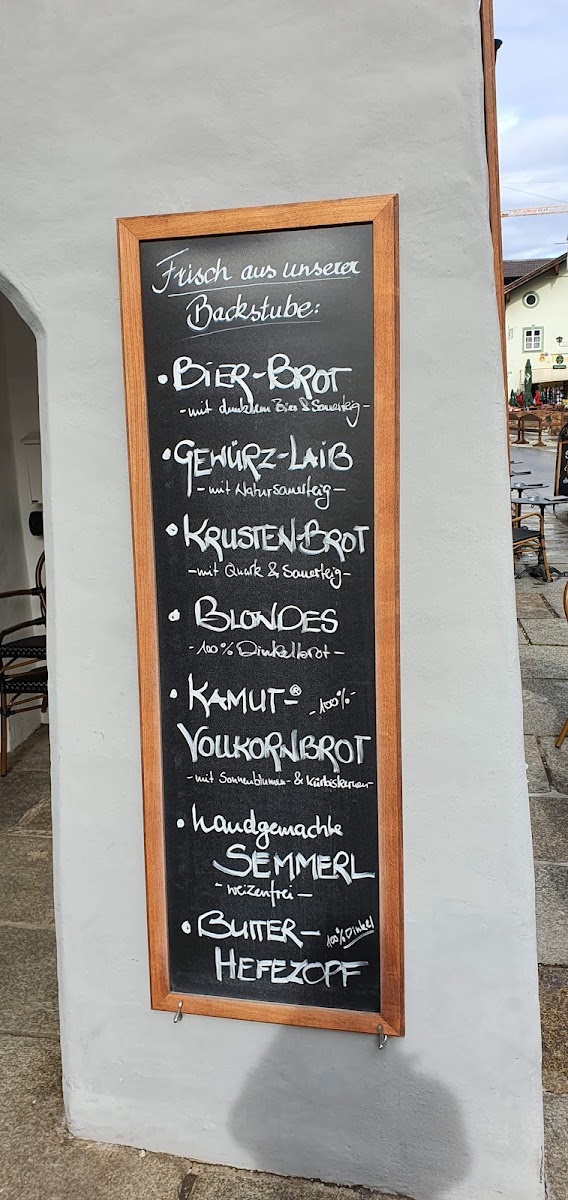 Frisch aus unserer
Backstube:
• BIER-BROT
- mit dunklem Bier & Sauerteig -
• GEWÜRZ-LAIB
- mit Natursauerteig -
• KRUSTEN-BROT
- mit Quark & Sauerteig -
• BLONDES
- 100% Dinkelbrot -
• KAMUT-® - 100% -
VOLLKORNBROT
- mit Sonnenblumen- & Kürbiskernen -
• handgemachte
SEMMERL
- weizenfrei -
• BUTTER- 100% Dinkel
HEFEZOPF